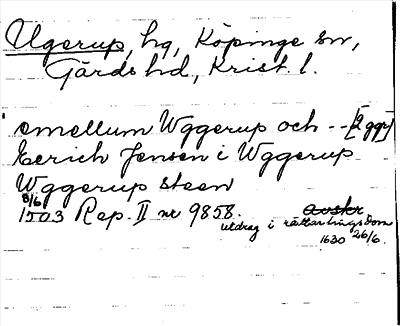 Ugerup, hg, Köpinge sn,
Gärds hd, Krist. l.
emellum Wggerup och -- [2 ggr]
Eerich Jensen i Wggerup
Wggerup steen
8/6
1503 Rep. II nr 9858. avskr
utdrag i rättartingsdom
1630 26/6.